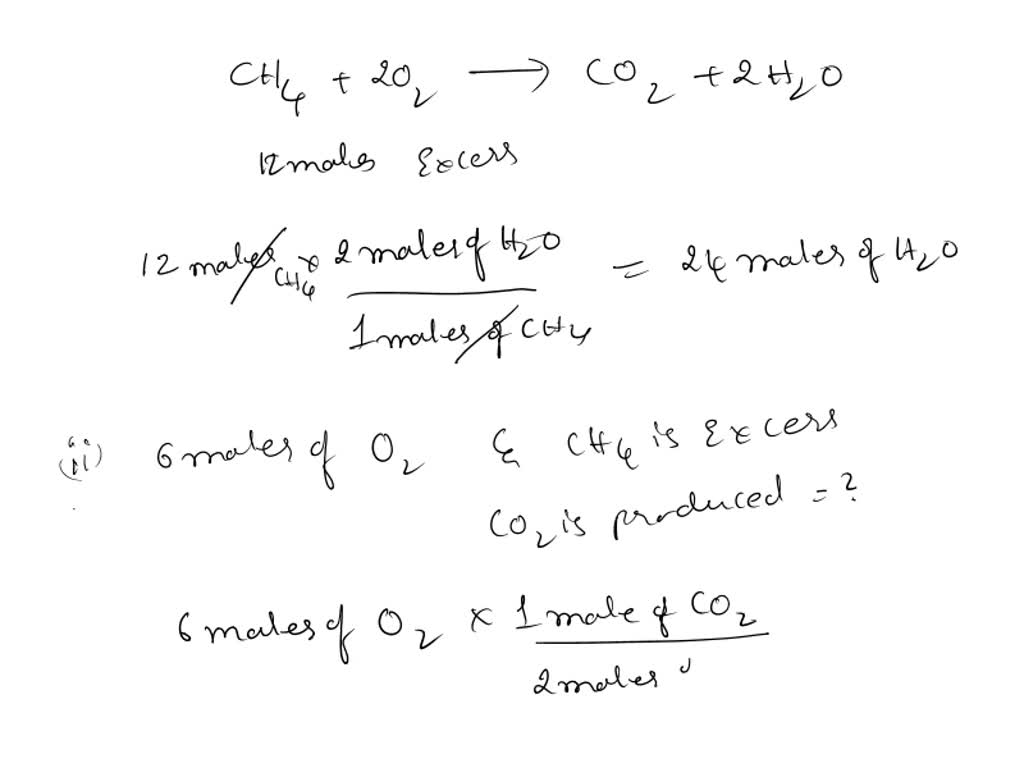 CH₄ + 2O₂ ⟶ CO₂ + 2H₂O
12 moles Excess
12 moles CH₄ × 2 moles of H₂O / 1 moles of CH₄ = 24 moles of H₂O
(ii) 6 moles of O₂ & CH₄ is Excess
CO₂ is produced = ?
6 moles of O₂ × 1 mole of CO₂ / 2 moles